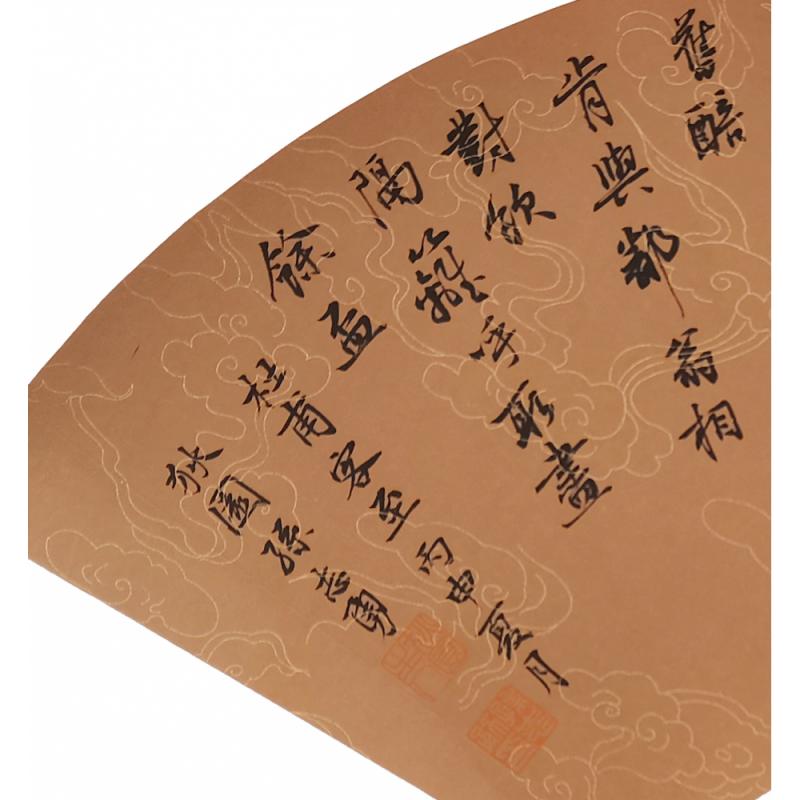 舊醅
肯與鄰翁相
對飲
隔籬呼取盡
餘盃
杜甫客至丙申夏月
園孫志勇